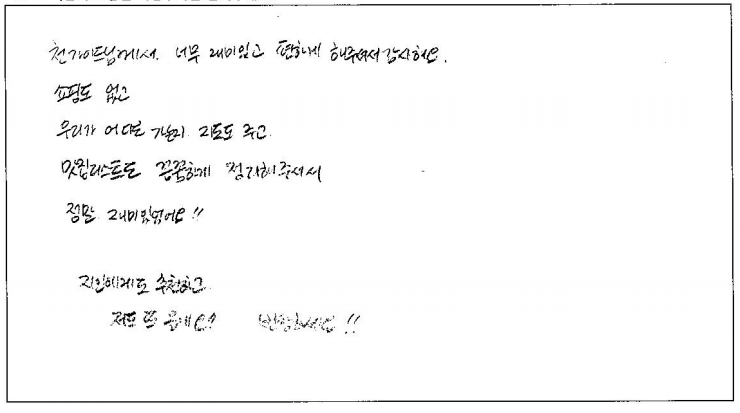 천가이드님께서. 너무 재미있고 편하게 해주셔서 감사해요.
쇼핑도 없고
우리가 어디로 가는지 지도도 주고
맛집리스트도 꼼꼼하게 정리해주셔서
정말 재미있었어요!!
지인에게도 추천하고
저도 또 올게요!